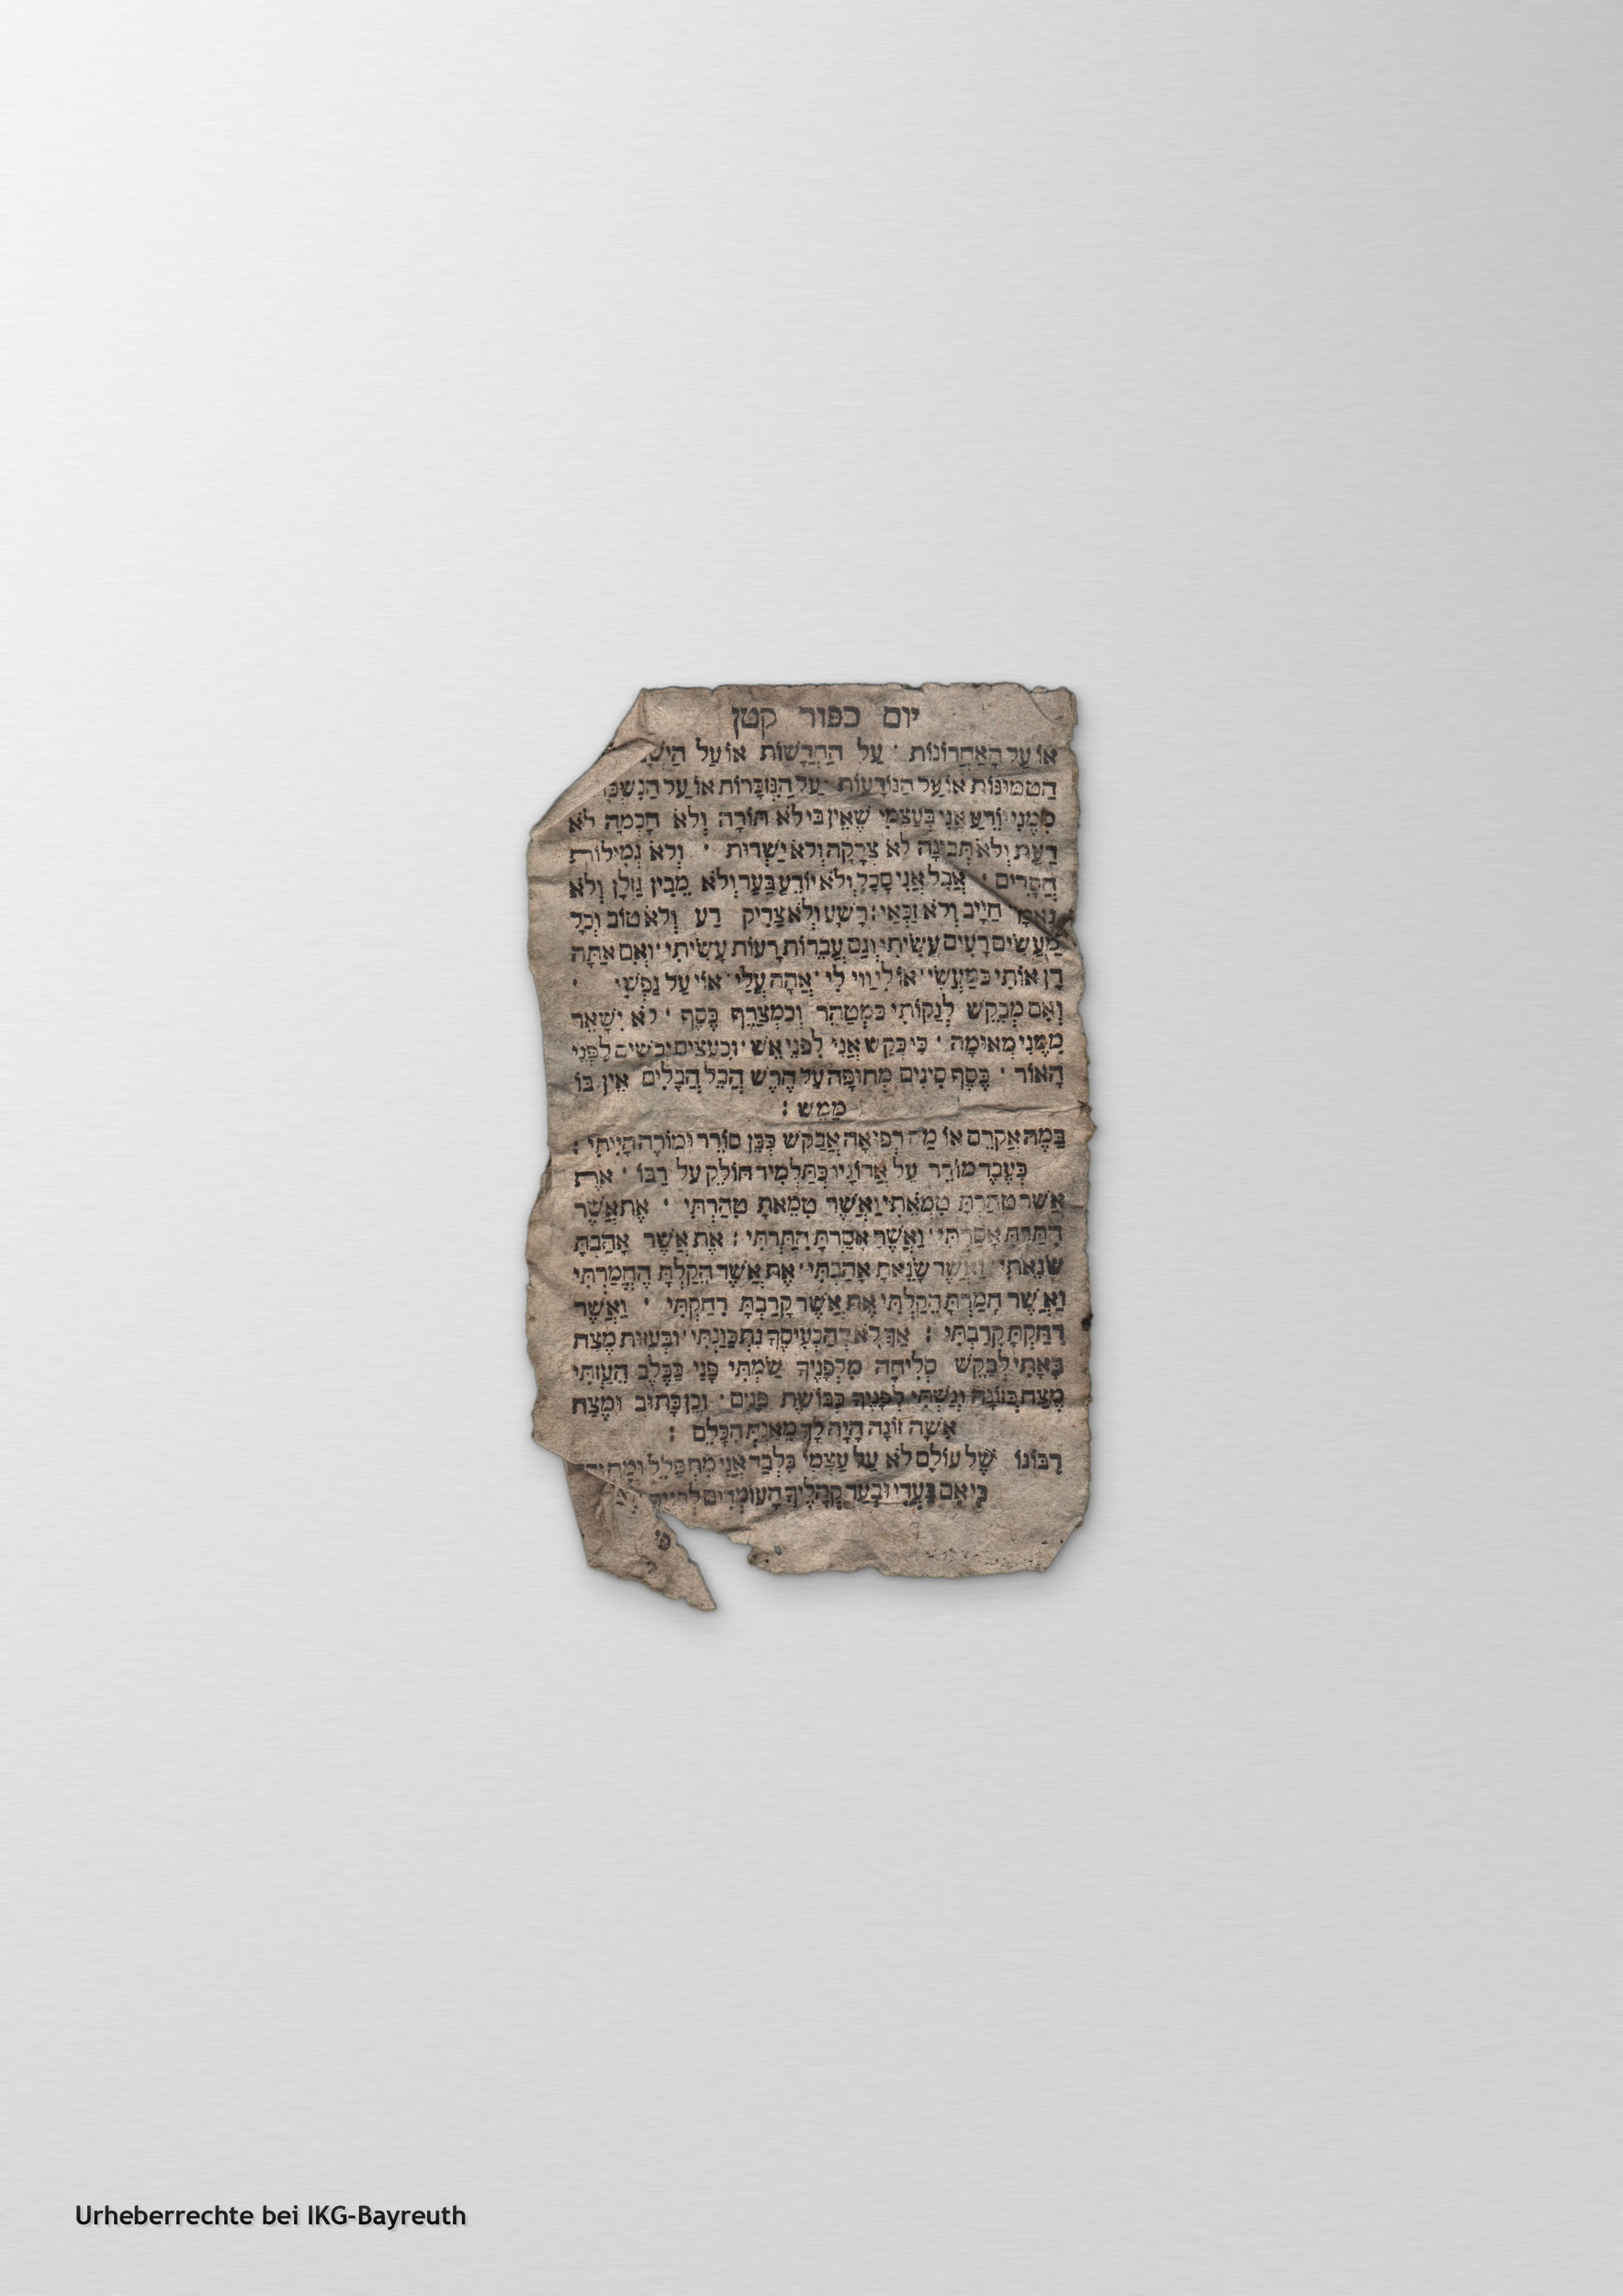 יום כפור קטן
או על הָאַחֲרוֹנוֹת · עַל הַחֲדָשׁוֹת אוֹ עַל
הַטְמוּנוֹת אוֹ עַל הַנּוֹדָעוֹת · עַל הַנִּזְכָּרוֹת אוֹ עַל
מִמֶּנִּי יוֹדֵעַ אֲנִי בְּעַצְמִי שֶׁאֵין בִּי לֹא תּוֹרָה וְלֹא חָכְמָה לֹא
דַעַת וְלֹא תְּבוּנָה לֹא צְדָקָה וְלֹא יַשְׁרוּת · וְלֹא גְמִילוּת
חֲסָדִים · אֲבָל אֲנִי סָכָל וְלֹא יוֹדֵעַ בַּעַר וְלֹא מֵבִין גַּזְלָן וְלֹא
נֶאֱמָן חַיָּיב וְלֹא זַכַּאי : רָשָׁע וְלֹא צַדִּיק רַע וְלֹא טוֹב וְכָל
מַעֲשִׂים רָעִים עָשִׂיתִי וְגַם עֲבֵרוֹת רָעוֹת עָשִׂיתִי · וְאִם אַתָּה
דָן אוֹתִי כְּמַעֲשַׂי · אוֹ לִי וַוי לִי · אֲהָהּ עָלַי · אוֹי עַל נַפְשִׁי ·
וְאִם מְבַקֵּשׁ לְנַקּוֹתִי כִּמְטַהֵר וּכִמְצָרֵף כֶּסֶף · לֹא יִשָּׁאֵר
מִמֶּנִּי מְאוּמָה · כִּי כְּקַשׁ אֲנִי לִפְנֵי אֵשׁ · וּכְעֵצִים יְבֵשִׁים לִפְנֵי
הָאוֹר · כֶּסֶף סִיגִים מְחוּפֶּה עַל חֶרֶשׂ הֲבֵל הֲבָלִים אֵין בּוֹ
מַמָּשׁ :
בַּמֶּה אֲקַדֵּם אוֹ מַה רְפוּאָה אֲבַקֵּשׁ כְּבֵן סוֹרֵר וּמוֹרֶה הָיִיתִי :
כְּעֶבֶד מוֹרֵד עַל אֲדוֹנָיו כְּתַלְמִיד חוֹלֵק עַל רַבּוֹ · אֶת
אֲשֶׁר טִהַרְתָּ טִמֵּאתִי וַאֲשֶׁר טִמֵּאתָ טִהַרְתִּי · אֶת אֲשֶׁר
הִתַּרְתָּ אָסַרְתִּי · וַאֲשֶׁר אָסַרְתָּ הִתַּרְתִּי : אֶת אֲשֶׁר אָהַבְתָּ
שָׂנֵאתִי · וַאֲשֶׁר שָׂנֵאתָ אָהַבְתִּי · אֶת אֲשֶׁר הֵקַלְתָּ הֶחֱמַרְתִּי
וַאֲשֶׁר הֶחְמַרְתָּ הֵקַלְתִּי אֶת אֲשֶׁר קָרַבְתָּ רִחַקְתִּי · וַאֲשֶׁר
רִחַקְתָּ קֵרַבְתִּי : אַךְ לֹא לְהַכְעִיסְךָ נִתְכַּוַּנְתִּי · וּבְעַזּוּת מֵצַח
בָּאתִי לְבַקֵּשׁ סְלִיחָה מִלְּפָנֶיךָ שַׂמְתִּי פָּנַי כַּכֶּלֶב הֵעַזְתִּי
מֵצַח כְּזוֹנָה וְנַשְׁתִּי לְפָנֶיךָ כְּבוֹשֶׁת פָּנִים · וְכֵן כָּתוּב וּמֵצַח
אִשָּׁה זוֹנָה הָיָה לָךְ מֵאַנְתְּ הִכָּלֵם :
רִבּוֹנוֹ שֶׁל עוֹלָם לֹא עַל עַצְמִי בִּלְבַד אֲנִי מִתְפַּלֵּל
כִּי אִם בַּעֲדִי וּבְעַד קְהָלֶיךָ הָעוֹמְדִים
Urheberrechte bei IKG-Bayreuth